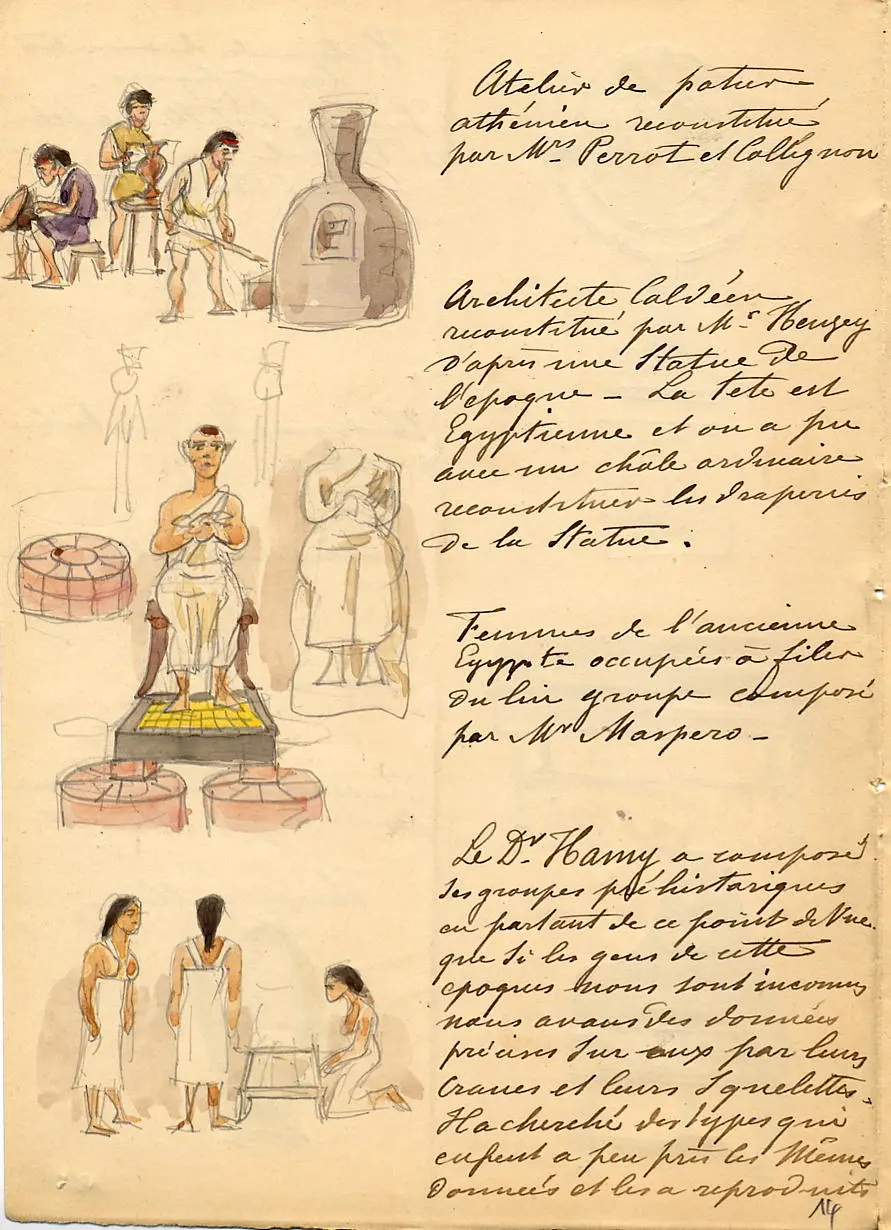 Atelier de potier
athénien reconstitué
par Mrs Perrot et Collignon
Architecte Caldéen
reconstitué par Mr Heuzey
d'après une Statue de
l'epoque - La tete est
Egyptienne et on a pu
avec un châle ordinaire
reconstituer les draperies
de la Statue.
Femmes de l'ancienne
Egypte occupées à filer
du lin groupe composé
par Mr Maspero -
Le Dr Hamy a composé
ses groupes préhistoriques
en partant de ce point de Vue
que Si les gens de cette
epoques nous sont inconnus
nous avons des données
précises Sur eux par leurs
Cranes et leurs Squelettes.
Il a cherché des types qui
eussent a peu près les Mêmes
données et les a reproduits
14